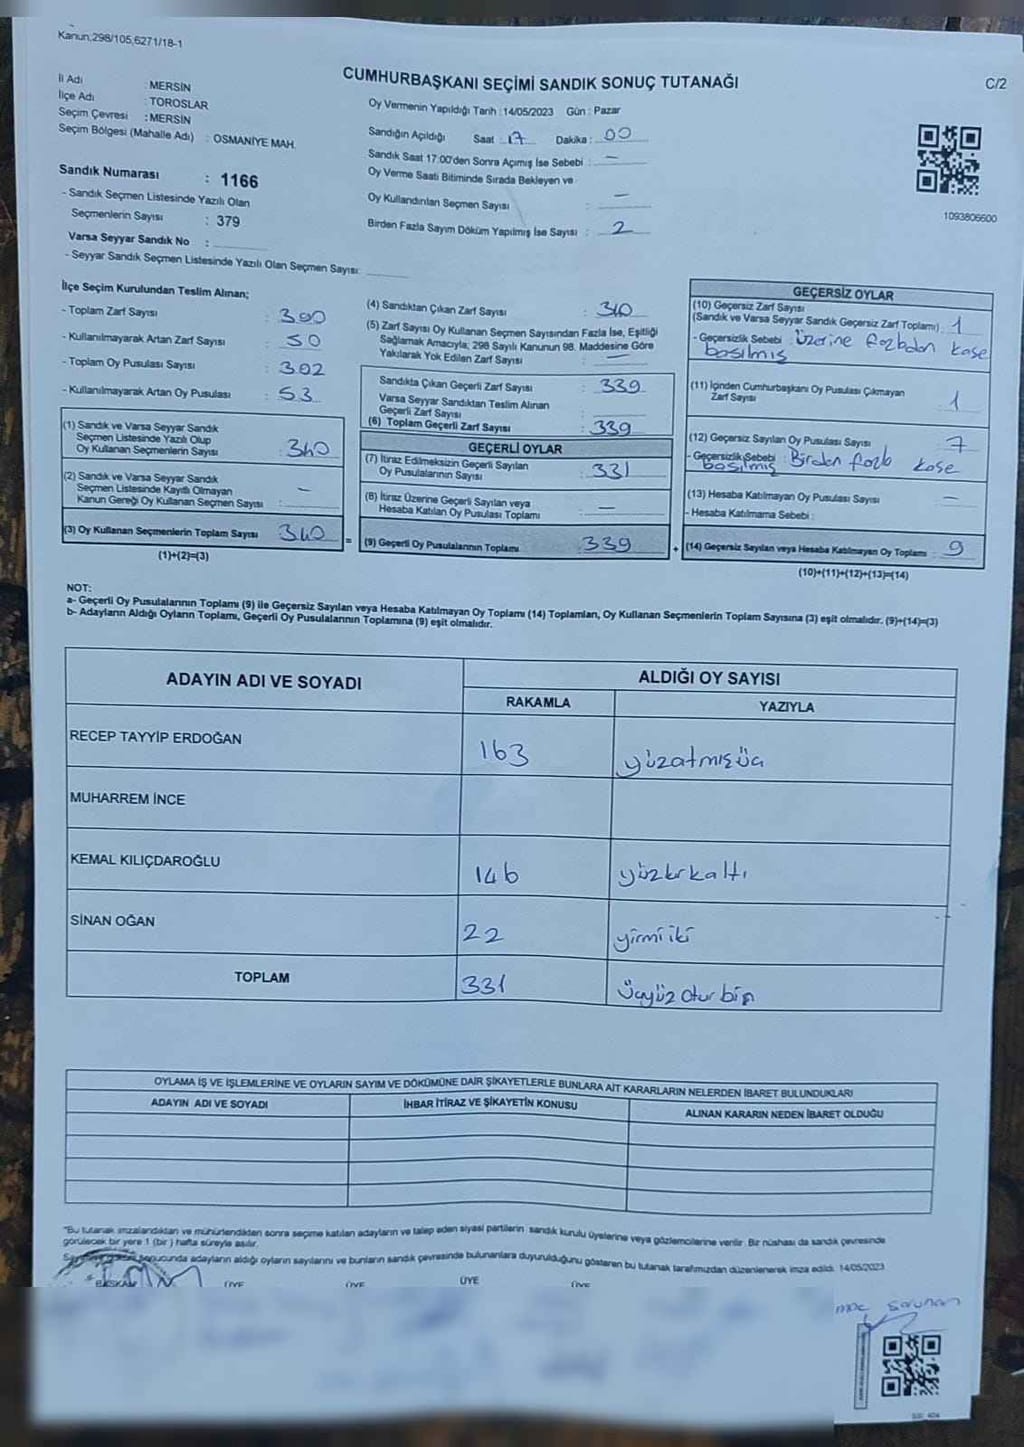 Kanun,298/105,6271/18-1
CUMHURBAŞKANI SEÇİMİ SANDIK SONUÇ TUTANAĞI
C/2
İl Adı : MERSİN
İlçe Adı : TOROSLAR
Seçim Çevresi : MERSİN
Seçim Bölgesi (Mahalle Adı) : OSMANİYE MAH.
Sandık Numarası : 1166
- Sandık Seçmen Listesinde Yazılı Olan
Seçmenlerin Sayısı : 379
Varsa Seyyar Sandık No :
- Seyyar Sandık Seçmen Listesinde Yazılı Olan Seçmen Sayısı:
Oy Vermenin Yapıldığı Tarih : 14/05/2023 Gün : Pazar
Sandığın Açıldığı Saat : 17 Dakika : 00
Sandık Saat 17:00'den Sonra Açımış İse Sebebi : —
Oy Verme Saati Bitiminde Sırada Bekleyen ve
Oy Kullandırılan Seçmen Sayısı : —
Birden Fazla Sayım Döküm Yapılmış İse Sayısı : 2
1093806600
İlçe Seçim Kurulundan Teslim Alınan;
- Toplam Zarf Sayısı : 390
- Kullanılmayarak Artan Zarf Sayısı : 50
- Toplam Oy Pusulası Sayısı : 392
- Kullanılmayarak Artan Oy Pusulası : 53
(1) Sandık ve Varsa Seyyar Sandık
Seçmen Listesinde Yazılı Olup
Oy Kullanan Seçmenlerin Sayısı : 340
(2) Sandık ve Varsa Seyyar Sandık
Seçmen Listesinde Kayıtlı Olmayan
Kanun Gereği Oy Kullanan Seçmen Sayısı : —
(3) Oy Kullanan Seçmenlerin Toplam Sayısı 340
(1)+(2)=(3)
=
(4) Sandıktan Çıkan Zarf Sayısı : 340
(5) Zarf Sayısı Oy Kullanan Seçmen Sayısından Fazla İse, Eşitliği
Sağlamak Amacıyla; 298 Sayılı Kanunun 98. Maddesine Göre
Yakılarak Yok Edilen Zarf Sayısı : —
Sandıkta Çıkan Geçerli Zarf Sayısı : 339
Varsa Seyyar Sandıktan Teslim Alınan
Geçerli Zarf Sayısı :
(6) Toplam Geçerli Zarf Sayısı : 339
GEÇERLİ OYLAR
(7) İtiraz Edilmeksizin Geçerli Sayılan
Oy Pusulalarının Sayısı : 331
(8) İtiraz Üzerine Geçerli Sayılan veya
Hesaba Katılan Oy Pusulası Toplamı : —
(9) Geçerli Oy Pusulalarının Toplamı : 339
+
GEÇERSİZ OYLAR
(10) Geçersiz Zarf Sayısı
(Sandık ve Varsa Seyyar Sandık Geçersiz Zarf Toplamı) : 1
- Geçersizlik Sebebi : Üzerine fazladan kaşe
basılmış
(11) İçinden Cumhurbaşkanı Oy Pusulası Çıkmayan
Zarf Sayısı : 1
(12) Geçersiz Sayılan Oy Pusulası Sayısı : 7
- Geçersizlik Sebebi Birden fazla kaşe
basılmış
(13) Hesaba Katılmayan Oy Pusulası Sayısı : —
- Hesaba Katılmama Sebebi :
(14) Geçersiz Sayılan veya Hesaba Katılmayan Oy Toplamı : 9
(10)+(11)+(12)+(13)=(14)
NOT:
a- Geçerli Oy Pusulalarının Toplamı (9) ile Geçersiz Sayılan veya Hesaba Katılmayan Oy Toplamı (14) Toplamları, Oy Kullanan Seçmenlerin Toplam Sayısına (3) eşit olmalıdır. (9)+(14)=(3)
b- Adayların Aldığı Oyların Toplamı, Geçerli Oy Pusulalarının Toplamına (9) eşit olmalıdır.
ADAYIN ADI VE SOYADI ALDIĞI OY SAYISI
RAKAMLA YAZIYLA
RECEP TAYYİP ERDOĞAN 163 yüzatmışüç
MUHARREM İNCE
KEMAL KILIÇDAROĞLU 146 yüzkırkaltı
SİNAN OĞAN 22 yirmiiki
TOPLAM 331 Üçyüz otur bir
OYLAMA İŞ VE İŞLEMLERİNE VE OYLARIN SAYIM VE DÖKÜMÜNE DAİR ŞİKAYETLERLE BUNLARA AİT KARARLARIN NELERDEN İBARET BULUNDUKLARI
ADAYIN ADI VE SOYADI İHBAR İTİRAZ VE ŞİKAYETİN KONUSU ALINAN KARARIN NEDEN İBARET OLDUĞU
"Bu tutanak imzalandıktan ve mühürlendikten sonra seçime katılan adayların ve talep eden siyasi partilerin sandık kurulu üyelerine veya gözlemcilerine verilir. Bir nüshası da sandık çevresinde
görülecek bir yere 1 (bir) hafta süreyle asılır.
sonucunda adayların aldığı oyların sayılarını ve bunların sandık çevresinde bulunanlara duyurulduğunu gösteren bu tutanak tarafımızdan düzenlenerek imza edildi. 14/05/2023
BAŞKAN ÜYE ÜYE ÜYE ÜYE